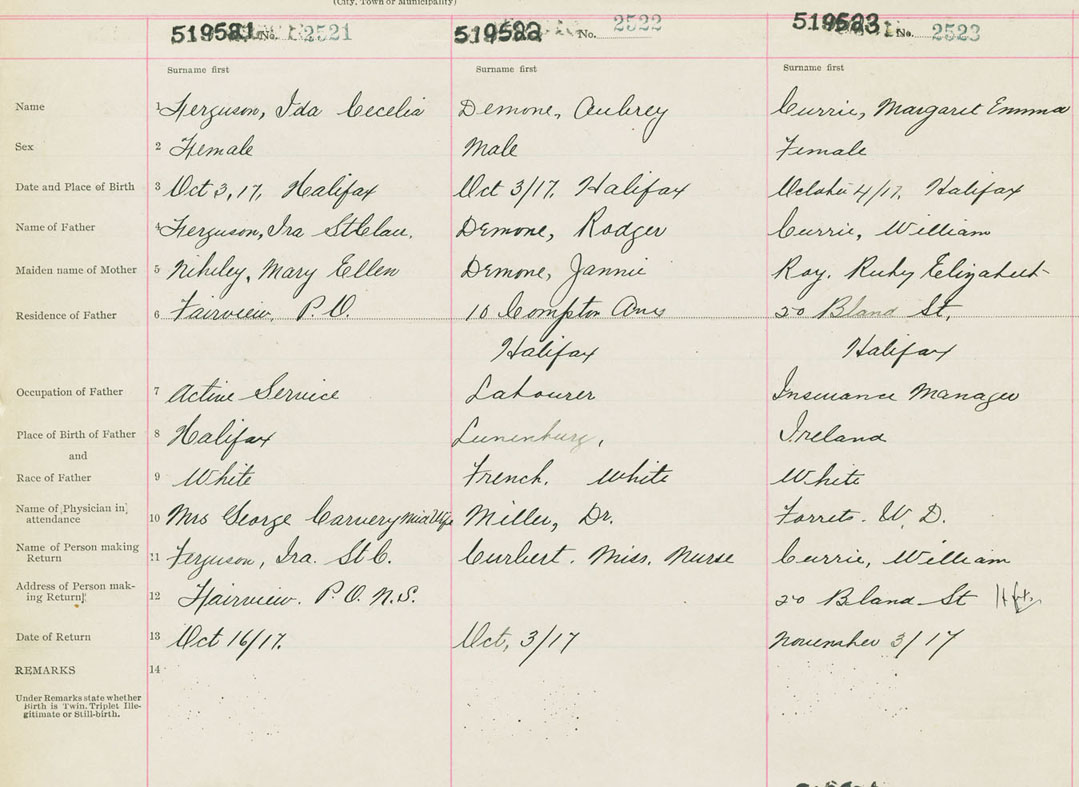 (City, Town or Municipality)
519521 No. 2521 519522 No. 2522 519523 No. 2523
Surname first Surname first Surname first
Name 1 Ferguson, Ida Cecelia Demone, Aubrey Currie, Margaret Emma
Sex 2 Female Male Female
Date and Place of Birth 3 Oct 3, 17, Halifax Oct 3/17, Halifax October 4/17, Halifax
Name of Father 4 Ferguson, Ira StClair. Demone, Rodger Currie, William
Maiden name of Mother 5 Mary Ellen Demone, Jannie Roy, Ruby Elizabeth
Residence of Father 6 Fairview, P.O. 10 Compton Ave 20 Bland St,
Halifax Halifax
Occupation of Father 7 Active Service Labourer Insurance Manager
Place of Birth of Father 8 Halifax Lunenburg, Ireland
and
Race of Father 9 White French, White White
Name of Physician in
attendance 10 Mrs George Carvery MidWife Miller, Dr. W. D.
Name of Person making
Return 11 Ferguson, Ira. St C. Miss, Nurse Currie, William
Address of Person mak-
ing Return 12 Fairview. P.O. N.S. 20 Bland St Hfx
Date of Return 13 Oct 16/17. Oct, 3/17 November 3/17
REMARKS 14
Under Remarks state whether
Birth is Twin, Triplet Ille-
gitimate or Still-birth.